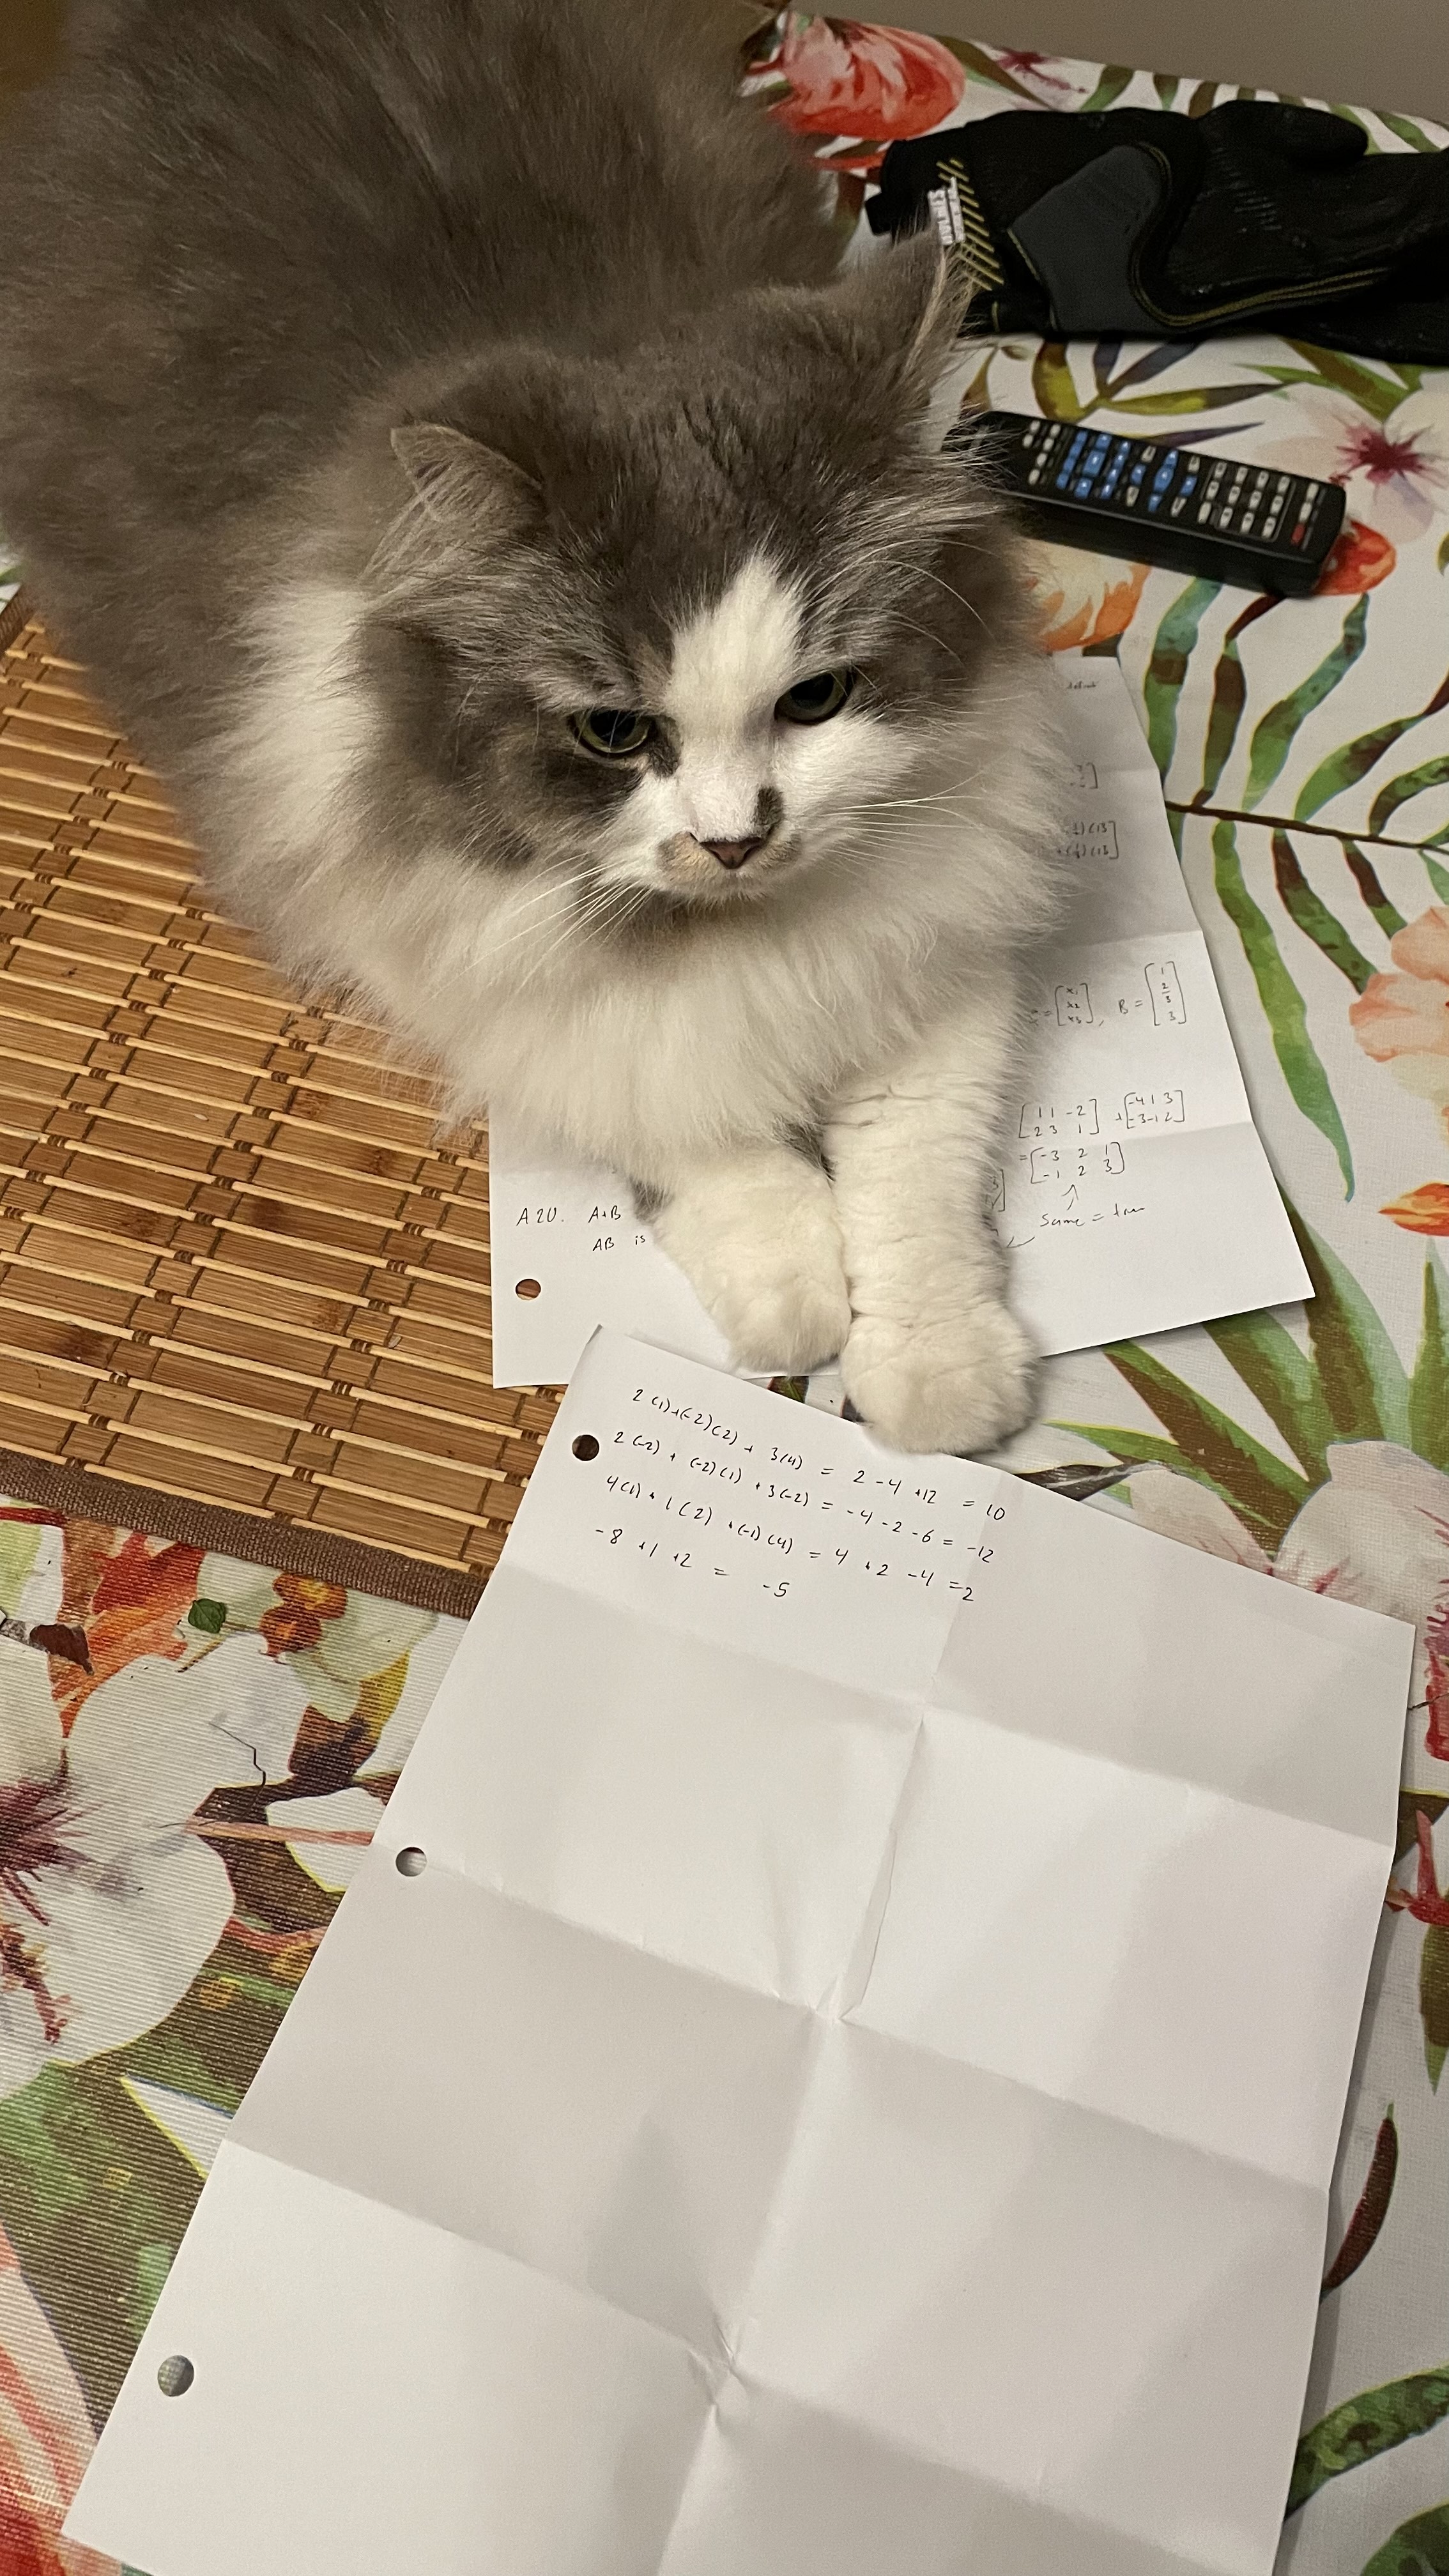 x₁
x₂
x₃
, B =
1
2
3
3
[1 1 -2] + [-4 1 3]
[2 3 1] [-3 -1 2]
= [-3 2 1]
[-1 2 3]
same = true
A 20. A+B
AB is
2(1)+(-2)(2) + 3(4) = 2 - 4 +12 = 10
2(-2) + (-2)(1) + 3(-2) = -4 - 2 - 6 = -12
4(1) + 1(2) +(-1)(4) = 4 +2 -4 =2
-8 +1 +2 = -5